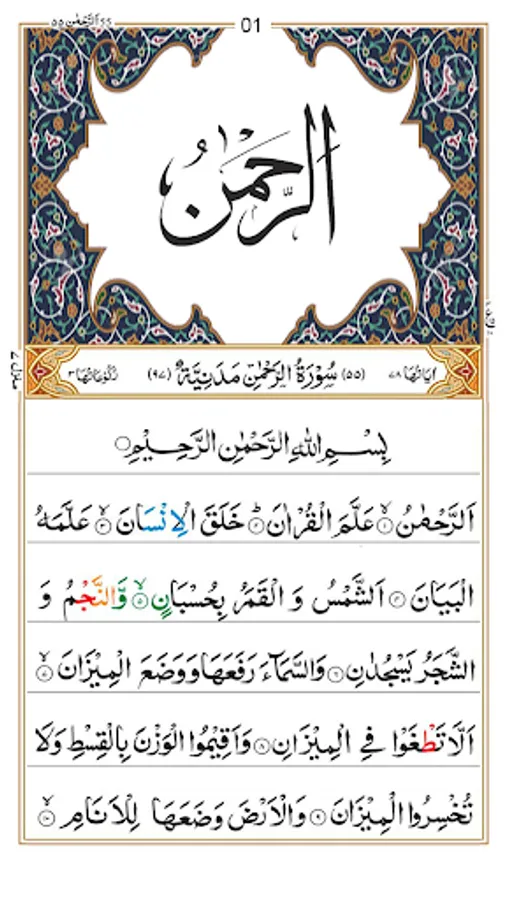 الرحمن ٥٥
01
اَلرَّحْمٰنُ
اٰيَاتُهَا ٧٨ (٥٥) سُوْرَةُ الرَّحْمٰنِ مَدَنِيَّةٌ (٩٧) رُكُوْعَاتُهَا ٣
بِسْمِ اللّٰهِ الرَّحْمٰنِ الرَّحِيْمِ
اَلرَّحْمٰنُ ۙ‏﴿۱﴾ عَلَّمَ الْقُرْاٰنَ ؕ‏﴿۲﴾ خَلَقَ الْاِنْسَانَ ۙ‏﴿۳﴾ عَلَّمَهُ
الْبَيَانَ ﴿۴﴾ اَلشَّمْسُ وَ الْقَمَرُ بِحُسْبَانٍ ۙ‏﴿۵﴾ وَّالنَّجْمُ وَ
الشَّجَرُ يَسْجُدٰنِ ﴿۶﴾ وَالسَّمَآءَ رَفَعَهَا وَوَضَعَ الْمِيْزَانَ ۙ‏﴿۷﴾
اَلَّا تَطْغَوْا فِي الْمِيْزَانِ ﴿۸﴾ وَاَقِيْمُوا الْوَزْنَ بِالْقِسْطِ وَلَا
تُخْسِرُوا الْمِيْزَانَ ﴿۹﴾ وَالْاَرْضَ وَضَعَهَا لِلْاَنَامِ ۙ‏﴿۱۰﴾